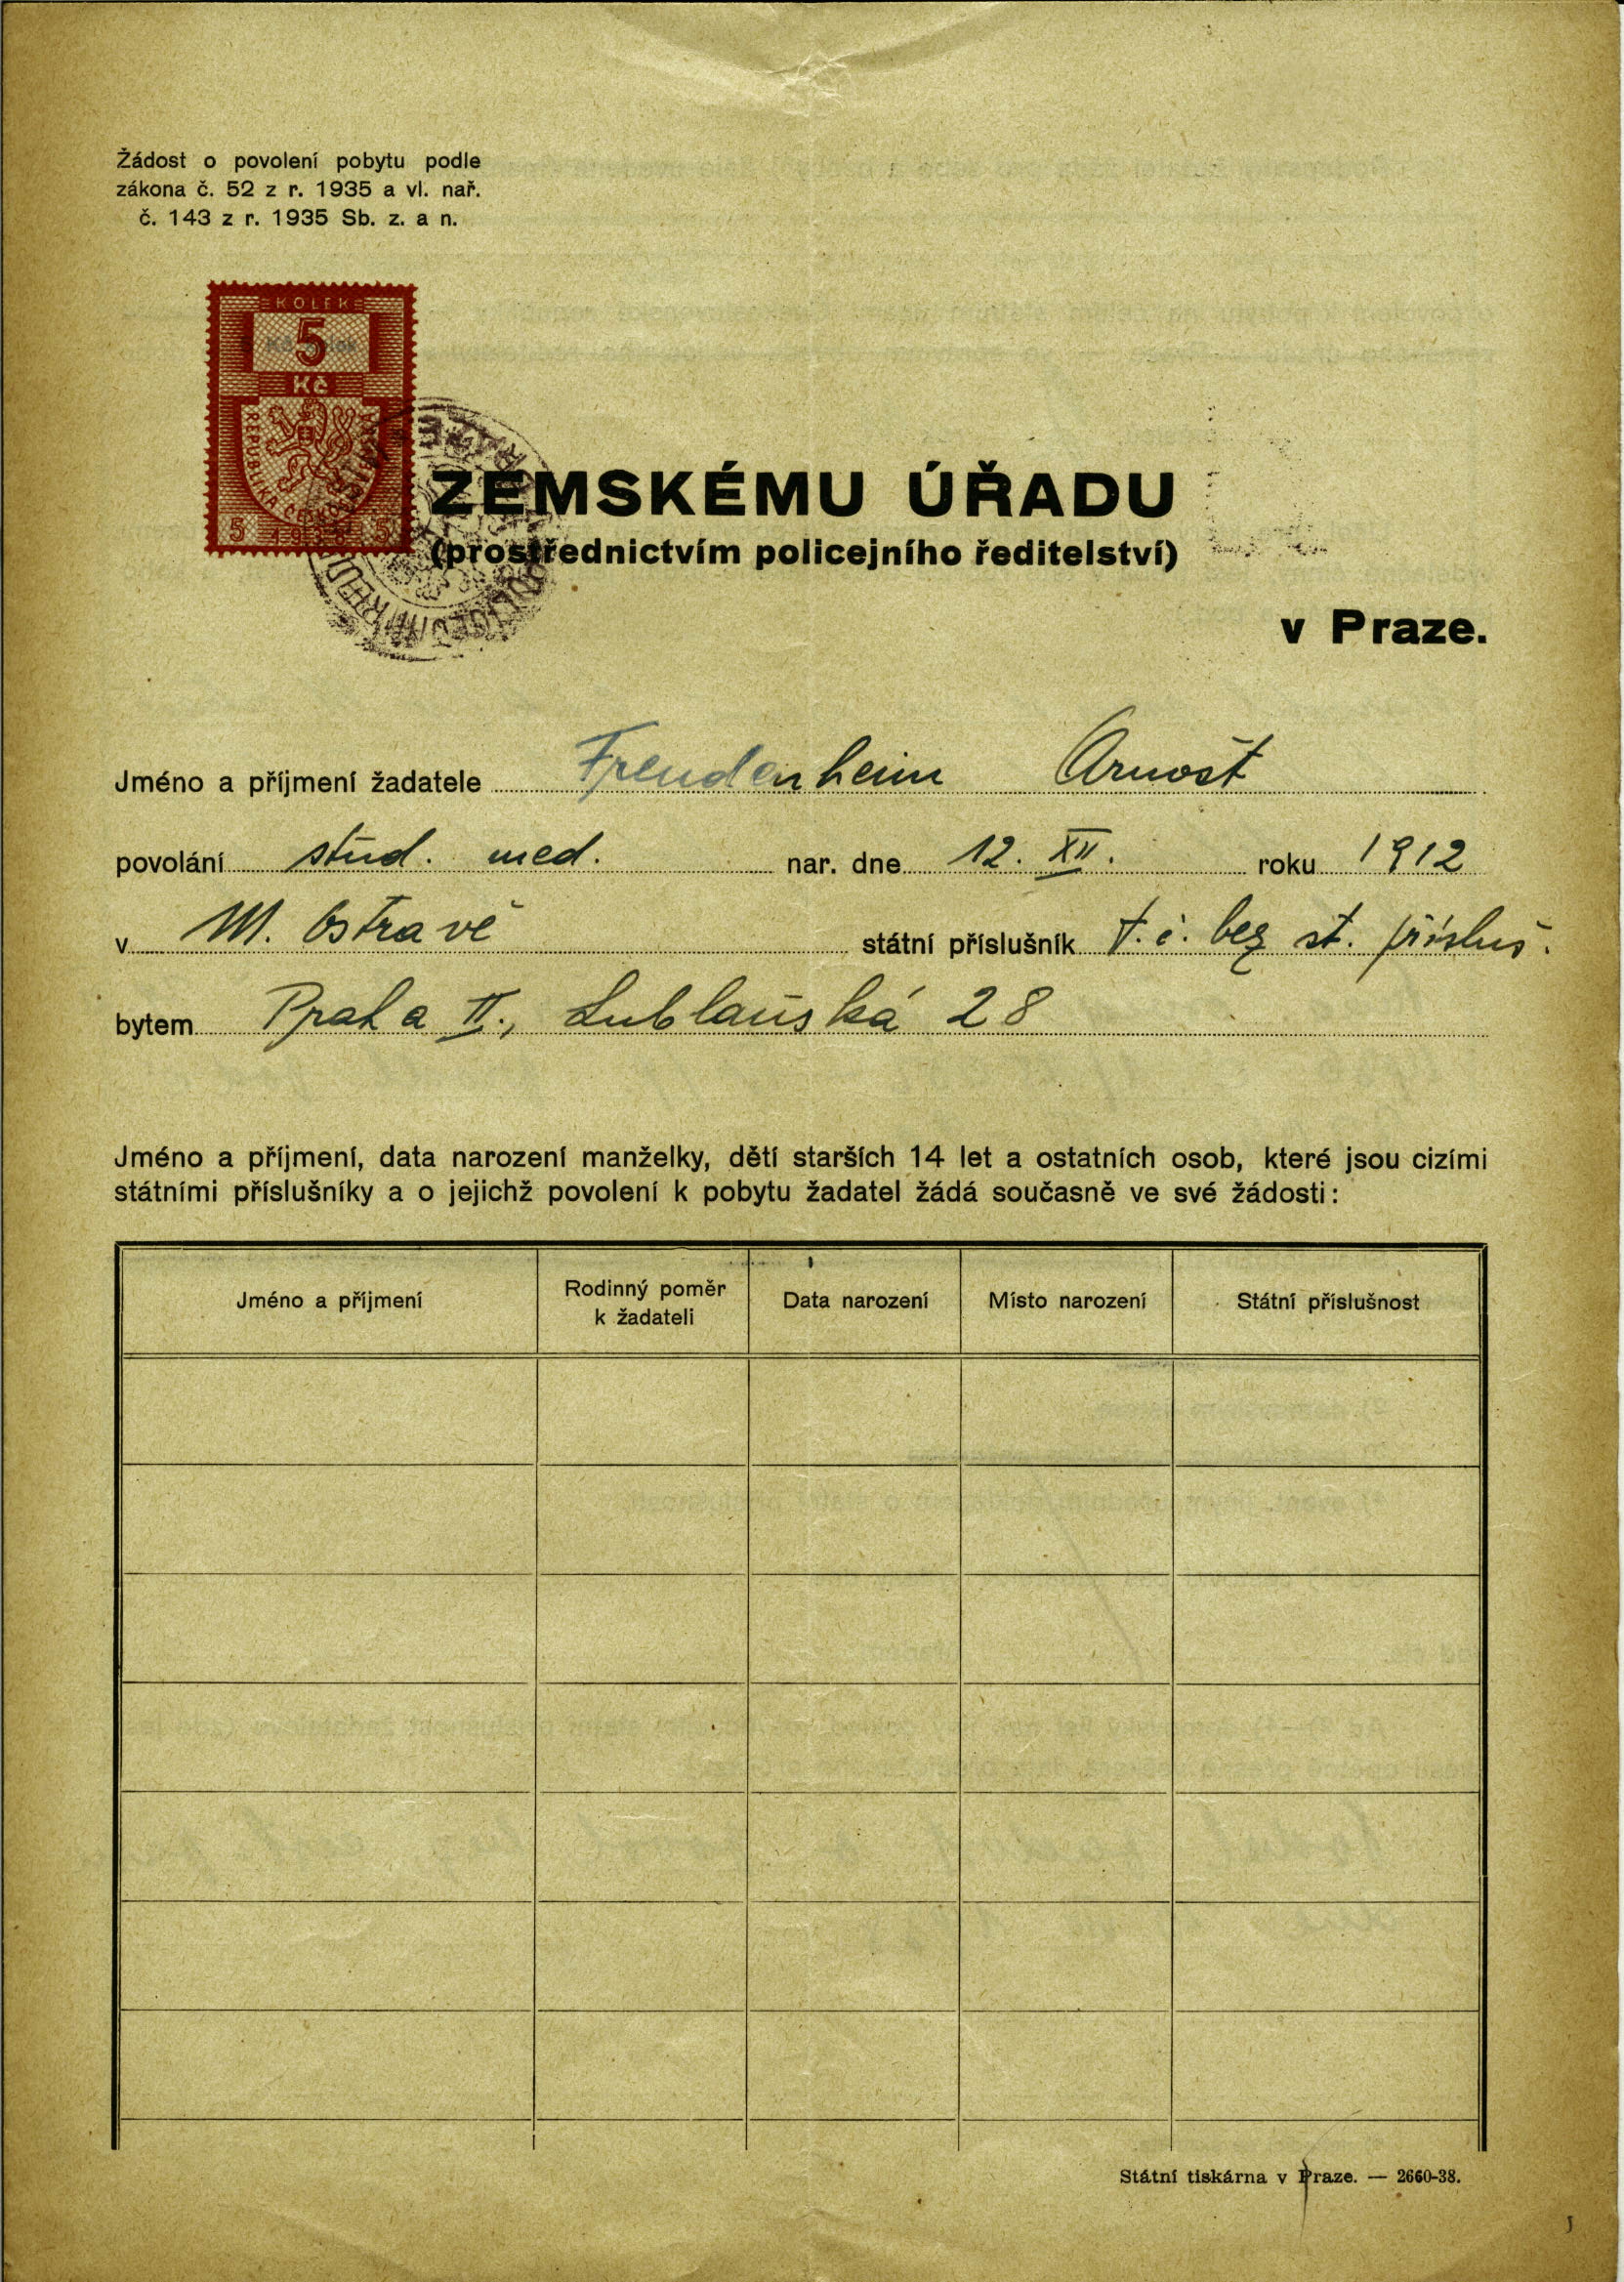 Žádost o povolení pobytu podle
zákona č. 52 z r. 1935 a vl. nař.
č. 143 z r. 1935 Sb. z. a n.
KOLEK
5
Kč
REPUBLIKA ČESKOSLOVENSKÁ
5 1938 5
ZEMSKÉMU ÚŘADU
(prostřednictvím policejního ředitelství)
v Praze.
Jméno a příjmení žadatele Freudenheim Arnošt
povolání stud. med. nar. dne 12. XII. roku 1912
v M. Ostravě státní příslušník t. č. bez st. přísluš.
bytem Praha II., Lublaňská 28
Jméno a příjmení, data narození manželky, dětí starších 14 let a ostatních osob, které jsou cizími
státními příslušníky a o jejichž povolení k pobytu žadatel žádá současně ve své žádosti:
Jméno a příjmení Rodinný poměr k žadateli Data narození Místo narození Státní příslušnost
Státní tiskárna v Praze. — 2660-38.